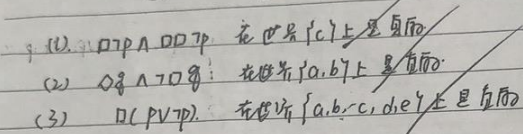 (1). □¬p∧□□¬p 在世界{c}上是真的
(2) ◇q∧¬□q: 在世界{a,b}上是真的.
(3) □(p∨¬p). 在世界{a,b,c,d,e}上是真的